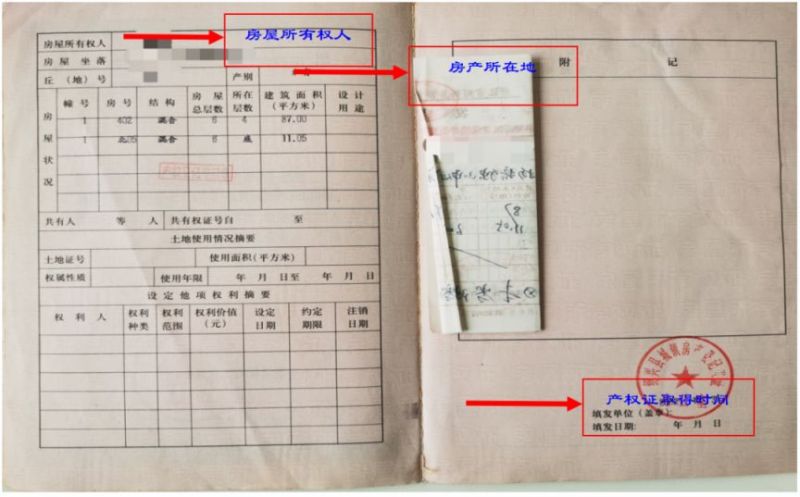 房屋所有权人
房屋所有权人
房屋坐落
丘（地）号
产别
房产所在地
附 记
房屋状况
幢号 房号 结构 房屋总层数 所在层数 建筑面积（平方米） 设计用途
1 402 混合 6 4 87.00
1 北05 混合 6 底 11.05
共有人 等 人 共有权证号自 至
土地使用情况摘要
土地证号 使用面积(平方米)
权属性质 使用年限 年 月 日至 年 月 日
设定他项权利摘要
权利人 权利种类 权利范围 权利价值（元） 设定日期 约定期限 注销日期
87
11.05
产权证取得时间
填发单位（盖章）：
填发日期： 年 月 日